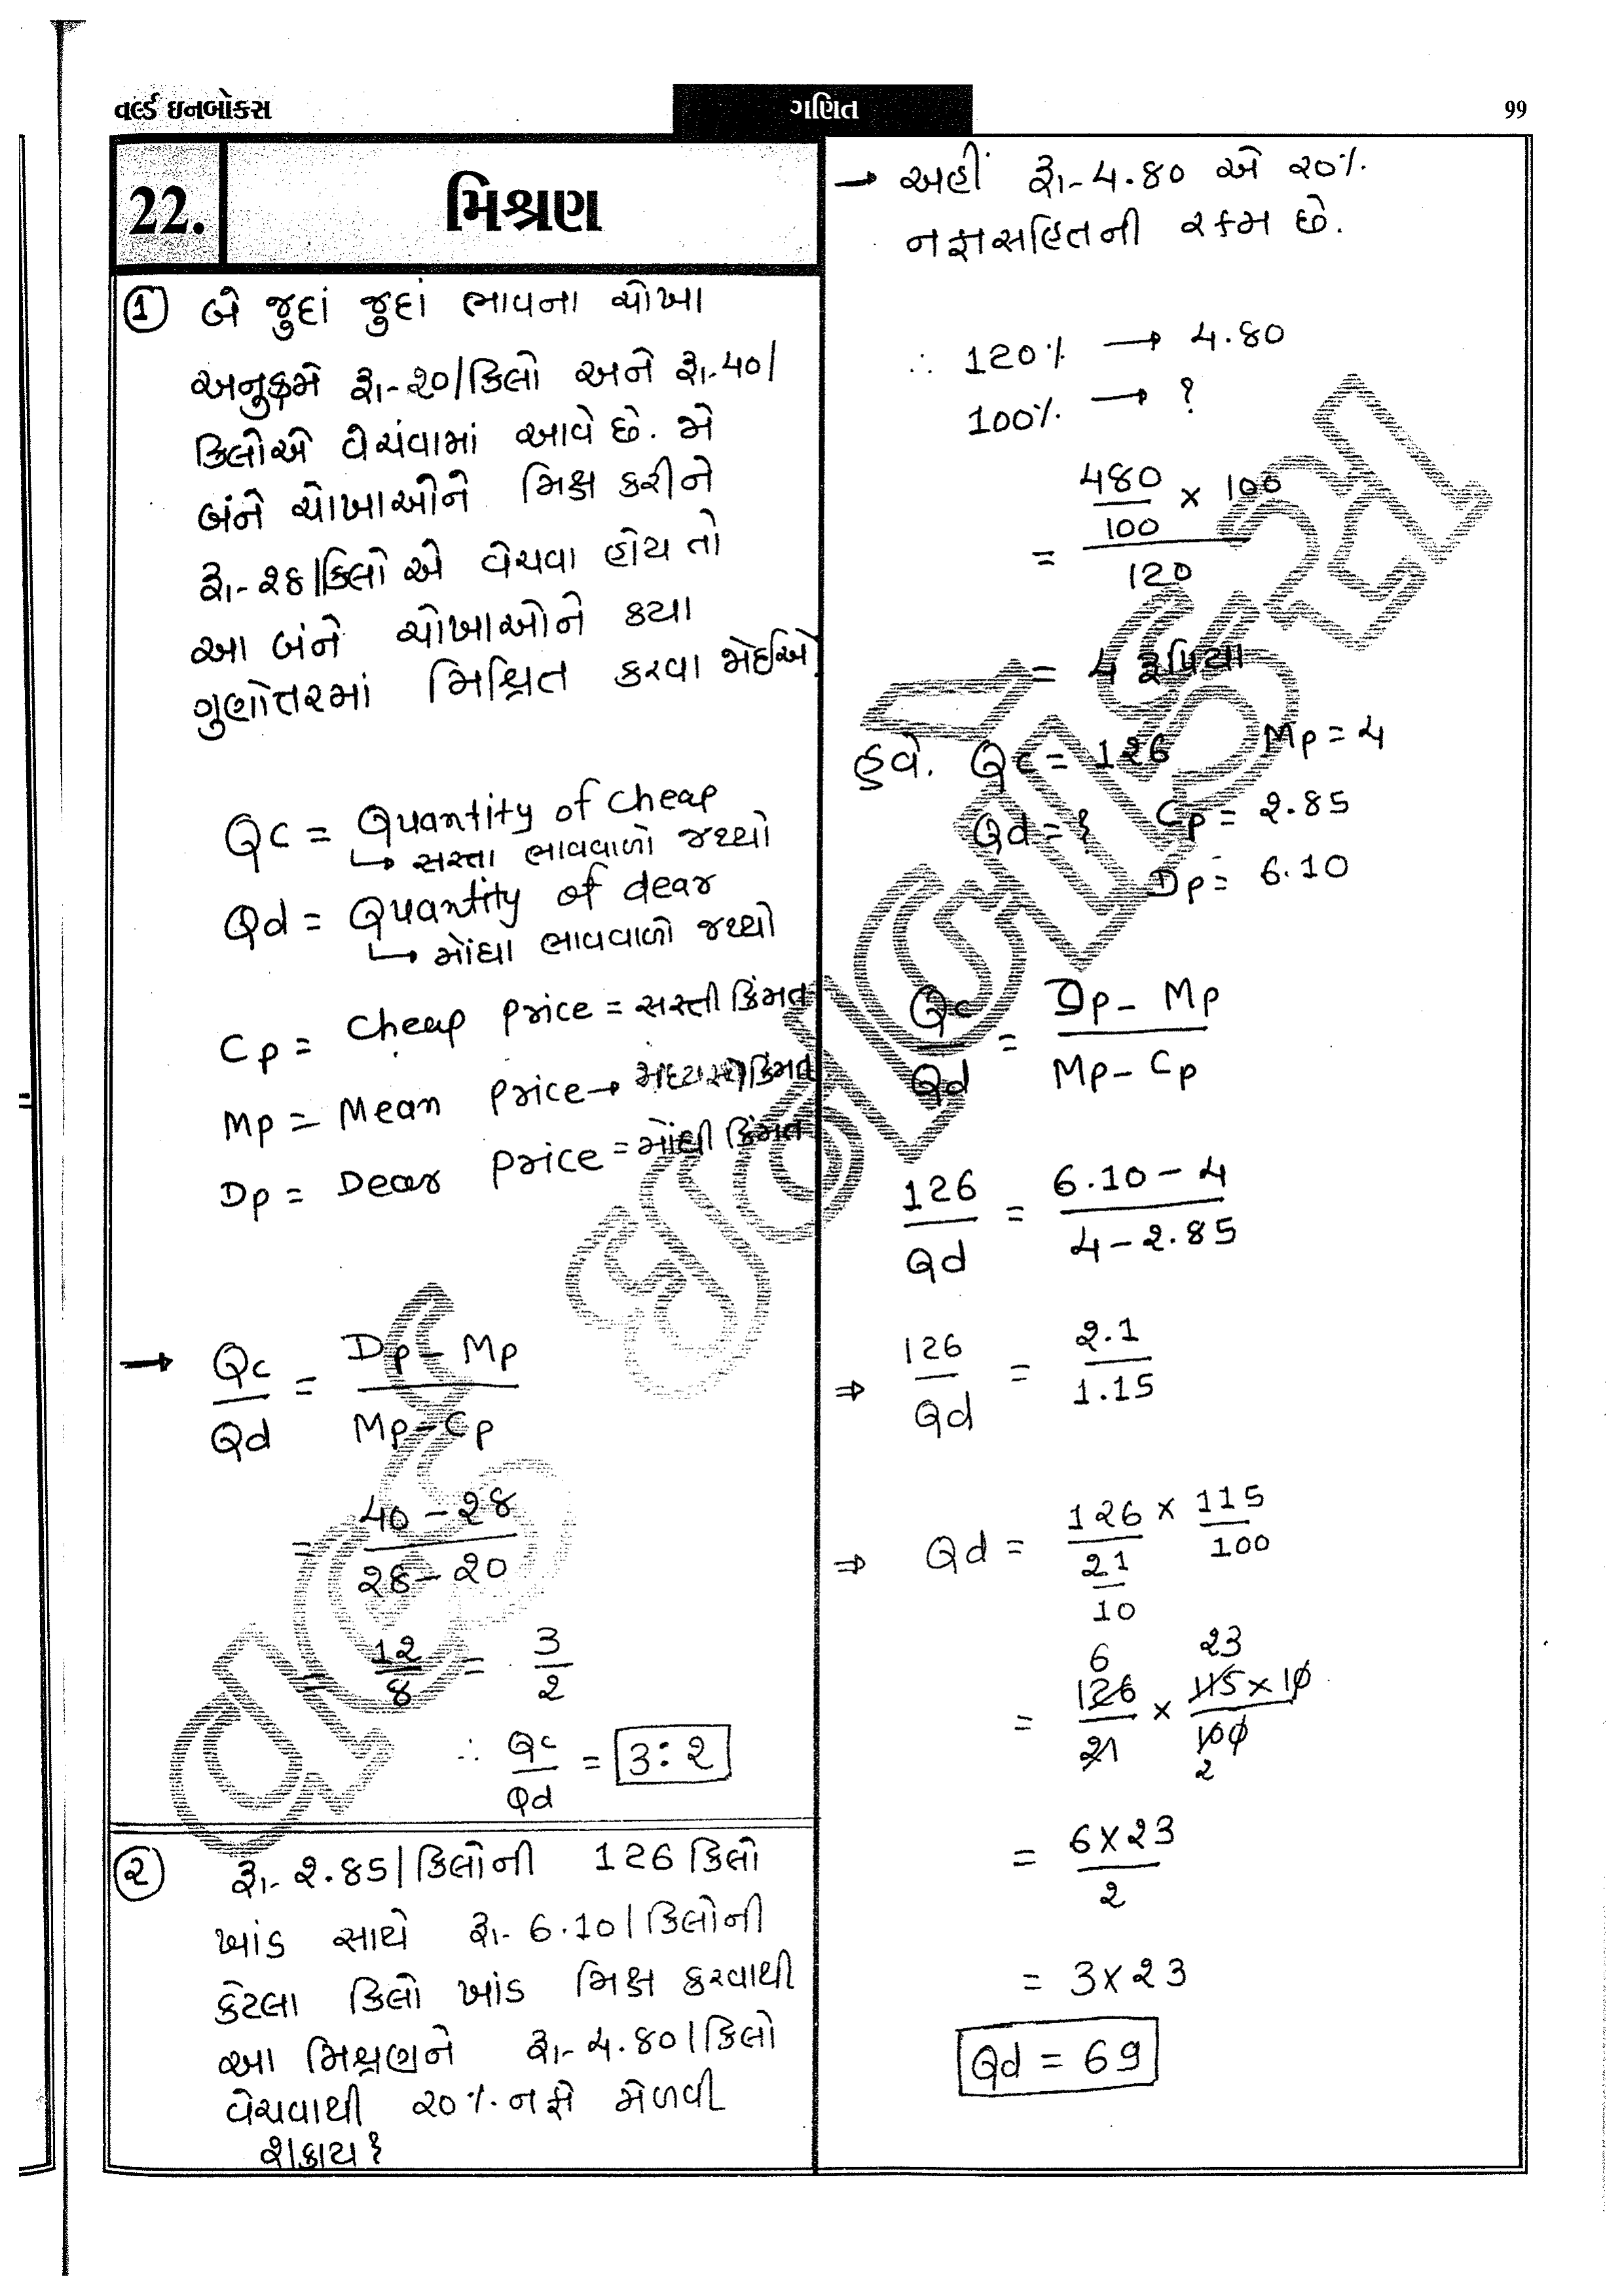 વર્લ્ડ ઇનબોક્સ
ગણિત
99
22.
મિશ્રણ
① બે જુદાં જુદાં ભાવના ચોખા
અનુક્રમે રૂ।.-૨૦/કિલો અને રૂ।.-૪૦/
કિલોએ વેચવામાં આવે છે. જો
બંને ચોખાઓને મિક્ષ કરીને
રૂ।.-૨૪/કિલો એ વેચવા હોય તો
આ બંને ચોખાઓને કયા
ગુણોત્તરમાં મિશ્રિત કરવા જોઈએ?
Qc = Quantity of cheap
↳ સસ્તા ભાવવાળો જથ્થો
Qd = Quantity of dear
↳ મોંઘા ભાવવાળો જથ્થો
Cp = Cheap Price = સસ્તી કિંમત
Mp = Mean Price →
Dp = Dear Price = મોંઘી કિંમત
→ Qc/Qd = Dp - Mp / Mp - Cp
= 40 - 28 / 28 - 20
= 12/8 = 3/2
∴ Qc/Qd = 3:2
② રૂ।.-2.85/કિલોની 126 કિલો
ખાંડ સાથે રૂ।.-6.10/કિલોની
કેટલા કિલો ખાંડ મિક્ષ કરવાથી
આ મિશ્રણને રૂ।.-4.80/કિલો
વેચવાથી 20% નફો મેળવી
શકાય?
→ અહીં રૂ।.-4.80 એ 20%
નફાસહિતની રકમ છે.
∴ 120% → 4.80
100% → ?
= 480/100 × 100 / 120
= 4 રૂપિયા
હવે. Qc = 126 Mp = 4
Qd = ? Cp = 2.85
Dp = 6.10
Qc/Qd = Dp - Mp / Mp - Cp
126/Qd = 6.10 - 4 / 4 - 2.85
⇒ 126/Qd = 2.1/1.15
⇒ Qd = 126 / 21/10 × 115/100
6 23
= 126/21 × 115 × 10 / 100
2
= 6 × 23 / 2
= 3 × 23
Qd = 69